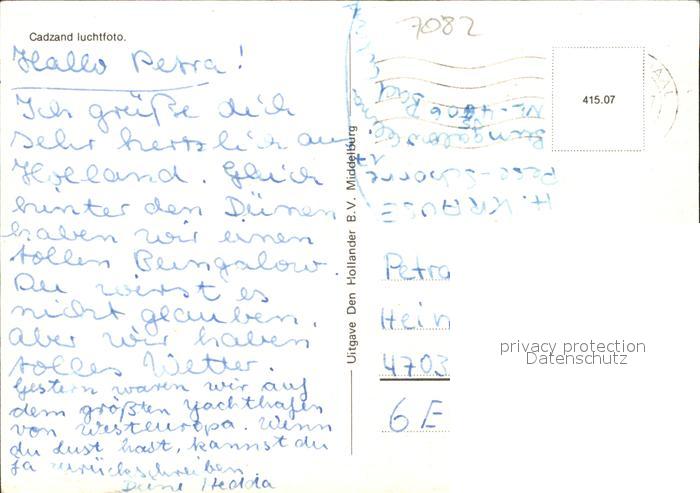 Cadzand luchtfoto.
Hallo Petra!
Ich grüße dich
sehr herzlich aus
Holland. Gleich
hinter den Dünen
haben wir einen
tollen Bungalow.
Du wirst es
nicht glauben,
aber wir haben
tolles Wetter.
Gestern waren wir auf
dem größten Yachthafen
von Westeuropa. Wenn
du Lust hast, kannst du
ja zurückschreiben.
Deine Hedda
Uitgave Den Hollander B.V. Middelburg
7082
415.07
H. KRAUSE
17
Bad
Petra
Hein
4703
6 E
privacy protection
Datenschutz